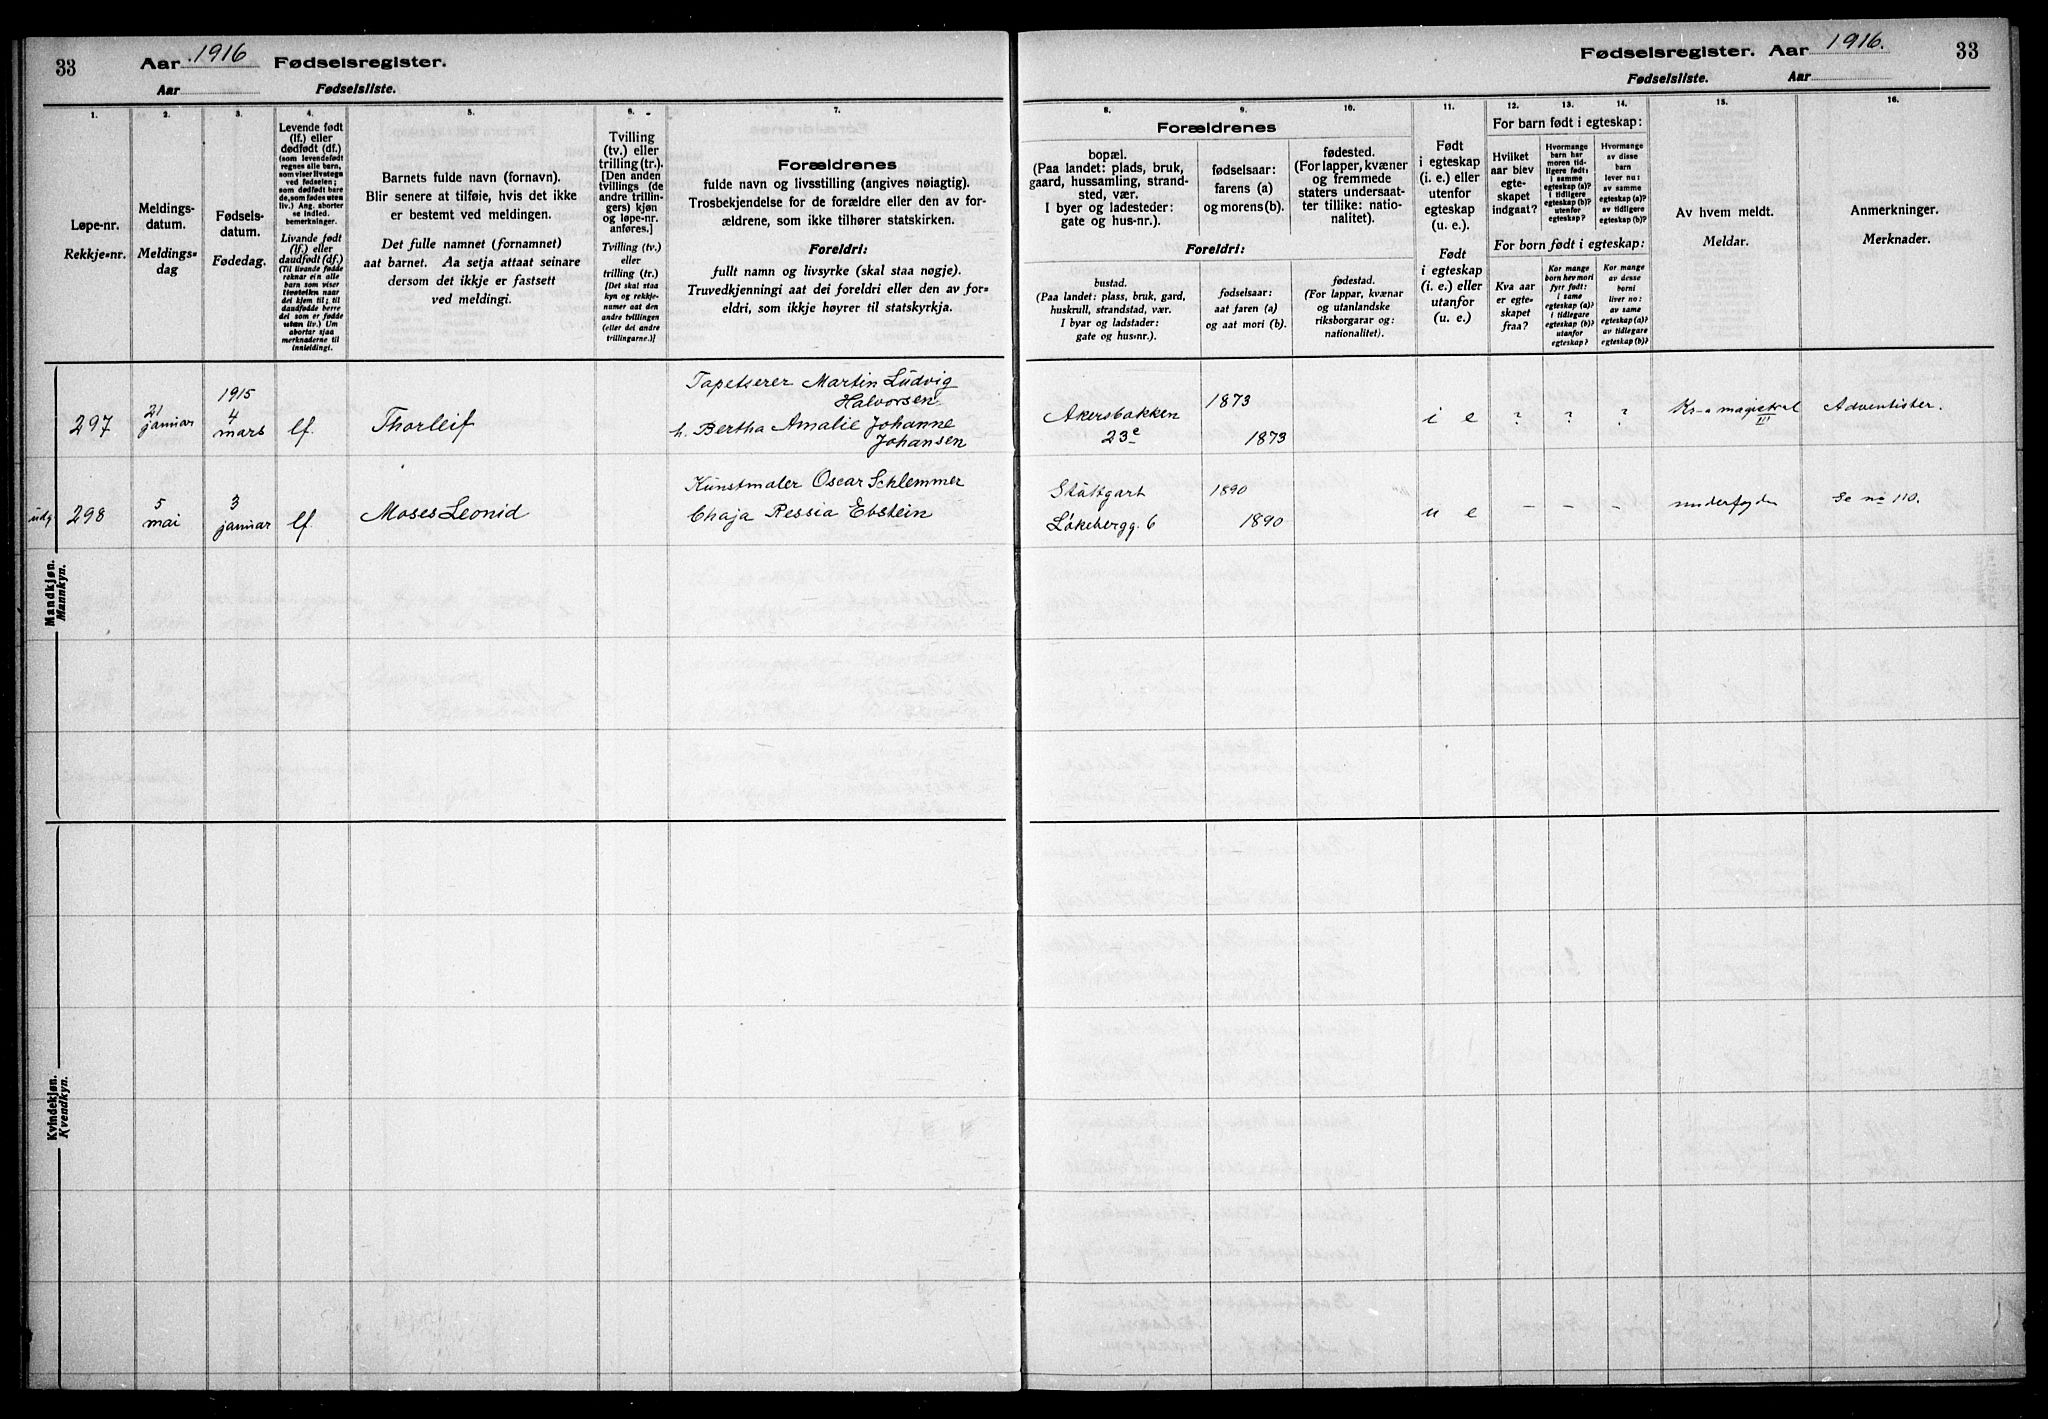 33
Aar 1916 Fødselsregister.
Aar Fødselsliste.
1.
2.
3.
4.
5.
6.
7.
Løpe-nr.
Rekkje-nr.
Meldings-
datum.
Meldings-
dag
Fødsels-
datum.
Fødedag.
Levende født
(lf.) eller
dødfødt (df.)
(som levendefødt
regnes alle barn,
som viser livstegn
ved fødselen;
som dødfødt bare
de, som fødes uten
liv.) Ang. aborter
se indled.
bemerkninger.
Livande født
(lf.) eller
daudfødt (df.)
(Til livande fødde
reknar ein alle
barn som viser
livsteikn naar
dei kjem til; til
daudfødde berre
dei som er fødde
utan liv.) Um
abortar sjaa
merknaderne til
innleidingi.
Barnets fulde navn (fornavn).
Blir senere at tilføie, hvis det ikke
er bestemt ved meldingen.
Det fulle namnet (fornamnet)
aat barnet. Aa setja attaat seinare
dersom det ikkje er fastsett
ved meldingi.
Tvilling
(tv.) eller
trilling (tr.)
[Den anden
tvillings (de
andre trillin-
gers) kjøn
og løpe-nr.
anføres.]
Tvilling (tv.)
eller
trilling (tr.)
[Det skal staa
kyn og rekkje-
numer aat den
andre tvillingen
(eller dei andre
trillingarne.)]
Forældrenes
fulde navn og livsstilling (angives nøiagtig).
Trosbekjendelse for de forældre eller den av for-
ældrene, som ikke tilhører statskirken.
Foreldri:
fullt namn og livsyrke (skal staa nøgje).
Truvedkjenningi aat dei foreldri eller den av for-
eldri, som ikkje høyrer til statskyrkja.
Mandkjøn.
Mannkyn.
297
21
januar
1915
4
mars
lf.
Thorleif
Tapetserer Martin Ludvig
Halvorsen
h. Bertha Amalie Johanne
Johansen
udg.
298
5
mai
3
januar
lf.
Moses Leonid
Kunstmaler Oscar Schlemmer
Chaja Pessia Ebstein
Kvindekjøn.
Kvendkyn.
Fødselsregister. Aar 1916.
33
Fødselsliste. Aar
8.
9.
10.
11.
12.
13.
14.
15.
16.
Forældrenes
bopæl.
(Paa landet: plads, bruk,
gaard, hussamling, strand-
sted, vær.
I byer og ladesteder:
gate og hus-nr.).
fødselsaar:
farens (a)
og morens (b).
fødested.
(For lapper, kvæner
og fremmede
staters undersaat-
ter tillike: natio-
nalitet).
Foreldri:
bustad.
(Paa landet: plass, bruk, gard,
huskrull, strandstad, vær.
I byar og ladstader:
gate og hus-nr.).
fødselsaar:
aat faren (a)
og aat mori (b).
fødestad.
(For lappar, kvænar
og utanlandske
riksborgarar og:
nationalitet).
Født
i egteskap
(i. e.) eller
utenfor
egteskap
(u. e.).
Født
i egteskap
(i. e.) eller
utanfor
(u. e.)
For barn født i egteskap:
Hvilket
aar blev
egte-
skapet
indgaat?
Hvormange
barn har
moren tid-
ligere født:
i samme
egteskap (a)?
i tidligere
egteskap (b)?
utenfor
egteskap?
Hvormange
av disse
barn
lever nu:
av samme
egteskap (a)?
av tidligere
egteskap (b)?
For born født i egteskap:
Kva aar
er egte-
skapet
fraa?
Kor mange
born hev mori
fyrr født:
i same
egteskap (a)?
i tidlegare
egteskap (b)?
utanfor
egteskap?
Kor mange
av desse
borni
liver no:
av same
egteskap (a)?
av tidlegare
egteskap (b)?
Av hvem meldt.
Meldar.
Anmerkninger.
Merknader.
Akersbakken
23e
1873
1873
i e
?
?
?
Kr-a magistrat
II
Adventister.
Stuttgart
Løkebergg. 6
1890
1890
u e
–
–
–
underfogden
Se no 110.